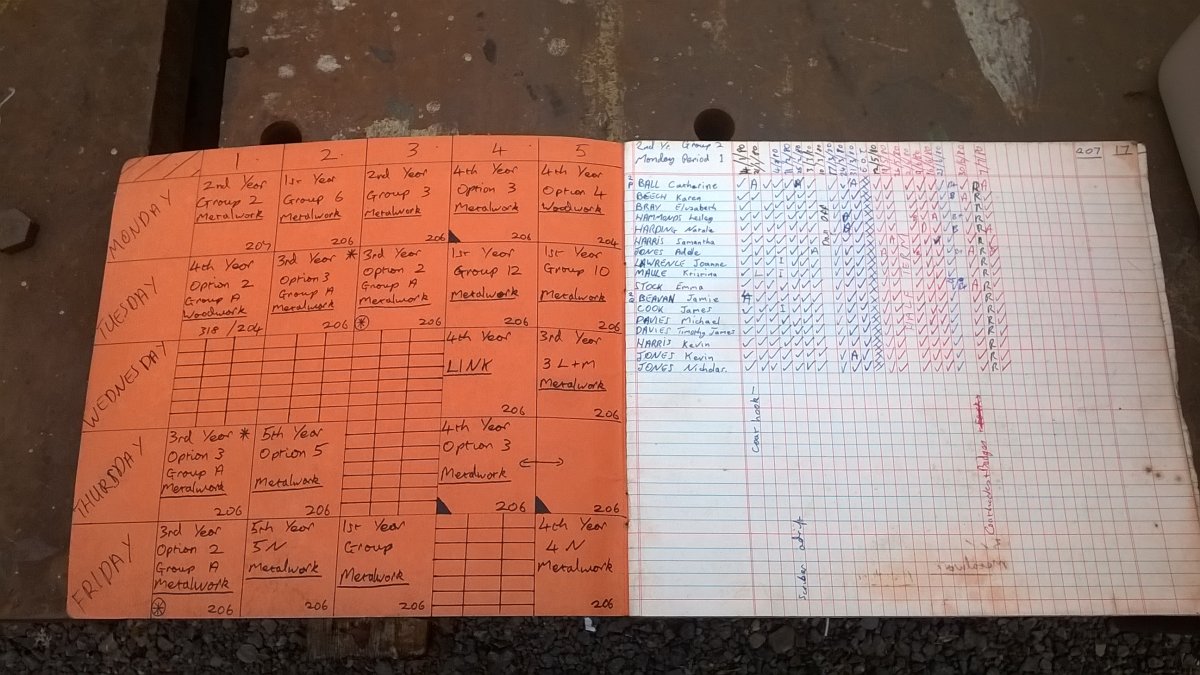 1 2 3 4 5
MONDAY
2nd Year
Group 2
Metalwork
207
1st Year
Group 6
Metalwork
206
2nd Year
Group 3
Metalwork
206
4th Year
Option 3
Metalwork
206
4th Year
Option 4
Woodwork
204
TUESDAY
4th Year
Option 2
Group A
Woodwork
318 / 204
3rd Year *
Option 3
Group A
Metalwork
206
3rd Year
Option 2
Group A
Metalwork
* 206
1st Year
Group 12
Metalwork
206
1st Year
Group 10
Metalwork
206
WEDNESDAY
4th Year
LINK
206
3rd Year
3 L+M
Metalwork
206
THURSDAY
3rd Year *
Option 3
Group A
Metalwork
206
5th Year
Option 5
Metalwork
206
4th Year
Option 3
Metalwork
206
FRIDAY
3rd Year
Option 2
Group A
Metalwork
* 206
5th Year
5N
Metalwork
206
1st Year
Group
Metalwork
206
4th Year
4 N
Metalwork
206
2nd Yr. Group 2
Monday Period 1
207 17
BALL Catherine
BEECH Karen
BRAY Elizabeth
HAMMONDS Lesley
HARDING Natalie
HARRIS Samantha
JONES Addle
LAWRENCE Joanne
MAULE Kristina
STOCK Emma
BEAVAN Jamie
COOK James
DAVIES Michael
DAVIES Timothy James
HARRIS Kevin
JONES Kevin
JONES Nicholas.
HALF TERM
Coat hook
Scriber